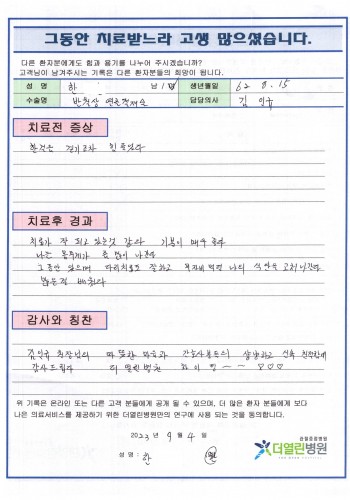 그동안 치료받느라 고생 많으셨습니다.
다른 환자분에게도 힘과 용기를 나누어 주시겠습니까?
고객님이 남겨주시는 기록은 다른 환자분들의 희망이 됩니다.
성 명 한 남 / 여 생년월일 62. 8. 15
수술명 반월상 연골절제술 담당의사 김 민규
치료전 증상
한걸음 걷기조차 힘들었다
치료후 경과
치료가 잘 되고 있는것 같다 기분이 매우 좋다
나는 몸무게가 좀 많이 나간다
그동안 다리치료도 잘하고 나의 식단을
감사와 칭찬
김민규 원장님의 따뜻한 마음과 간호사분들의 상냥하고 친절함에
감사드립니다 더 열린병원 파이팅 ~ ~ ♡♡♡
위 기록은 온라인 또는 다른 고객 분들에게 공개 될 수 있으며, 더 많은 환자 분들에게 보다
나은 의료서비스를 제공하기 위한 더열린병원만의 연구에 사용 되는 것을 동의합니다.
2023 년 9 월 4 일
성 명 : 한
관절중심병원
더열린병원